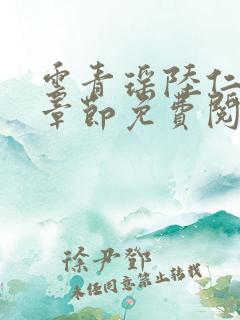 云青瑶陆仁
章节免费阅
徐尹邓
未经同意禁止转载